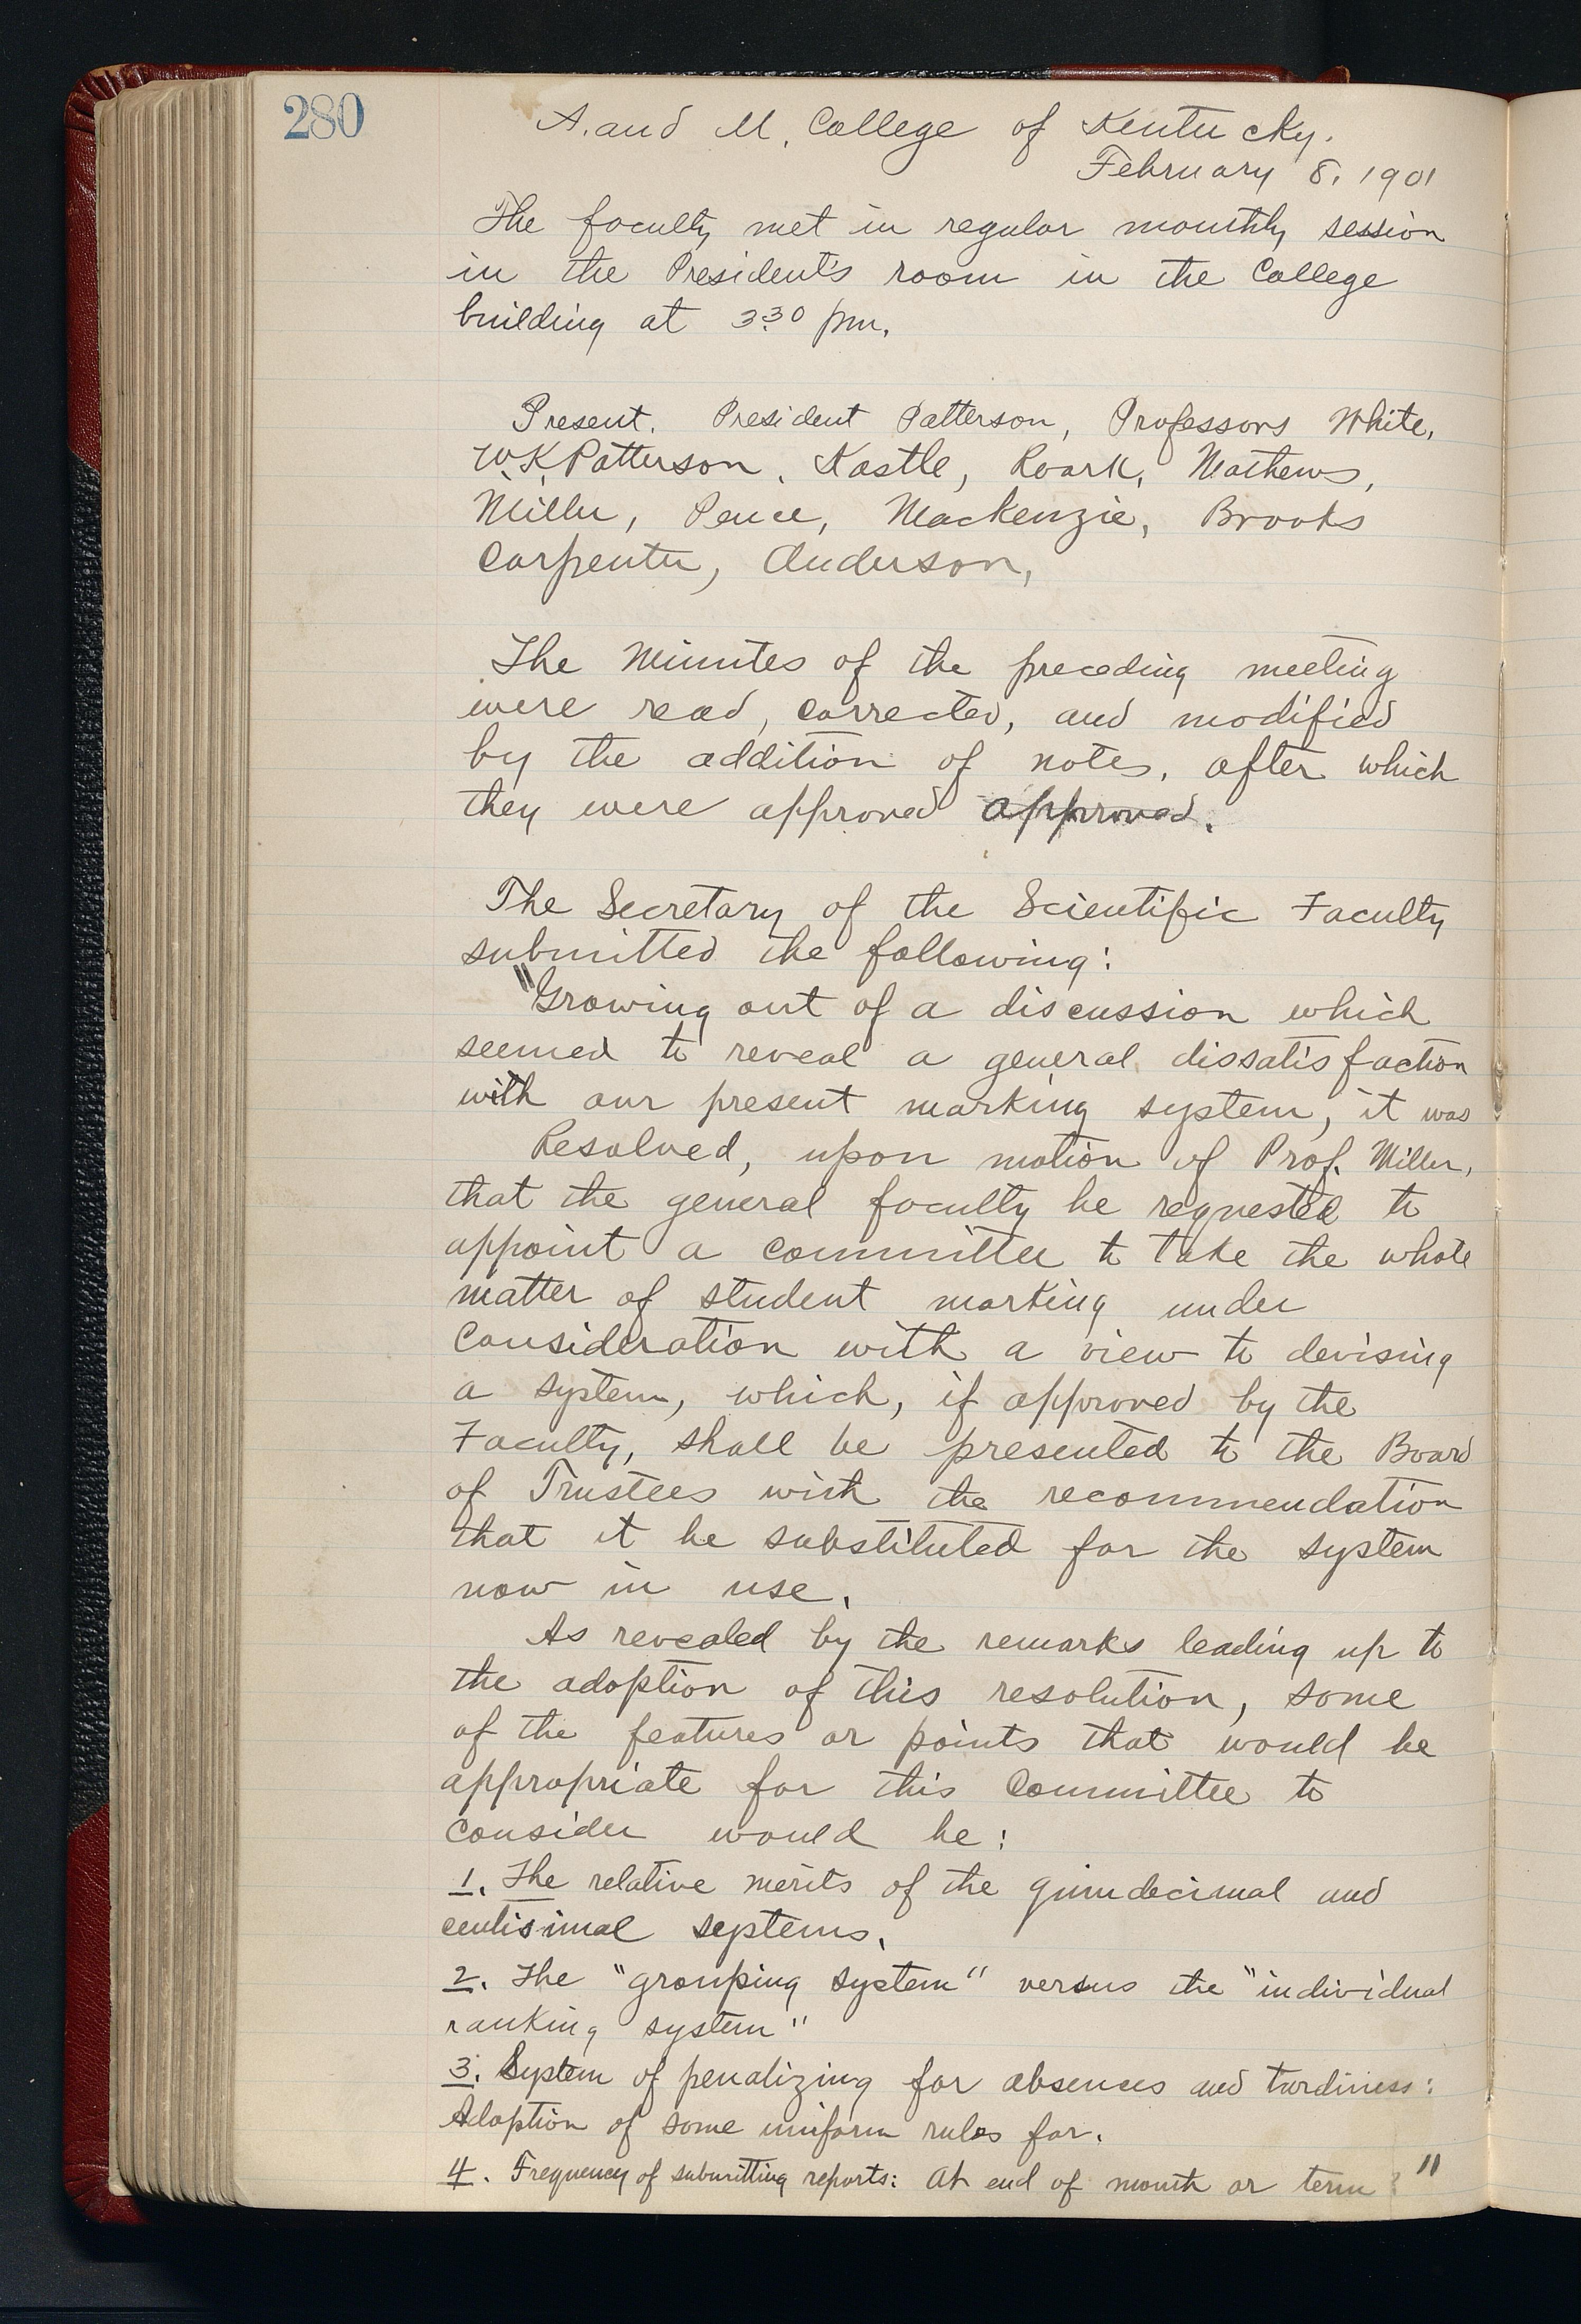 280
A. and M. College of Kentucky.
February 8, 1901
The faculty met in regular monthly session
in the President's room in the College
building at 3.30 pm.
Present. President Patterson, Professors White,
W.K. Patterson, Kastle, Roark, Mathews,
Miller, Pence, Mackenzie, Brooks
Carpenter, Anderson,
The Minutes of the preceding meeting
were read, corrected, and modified
by the addition of notes, after which
they were approved approved.
The Secretary of the Scientific Faculty
submitted the following:
"Growing out of a discussion which
seemed to reveal a general dissatisfaction
with our present marking system, it was
Resolved, upon motion of Prof. Miller,
that the general faculty be requested to
appoint a committee to take the whole
matter of student marking under
Consideration with a view to devising
a system, which, if approved by the
Faculty, shall be presented to the Board
of Trustees with the recommendation
that it be substituted for the system
now in use.
As revealed by the remarks leading up to
the adoption of this resolution, some
of the features or points that would be
appropriate for this Committee to
Consider would be:
1. The relative merits of the quindecimal and
centisimal systems.
2. The "grouping system" versus the "individual
ranking system"
3. System of penalizing for absences and tardiness:
Adoption of some uniform rules for.
4. Frequency of submitting reports: At end of month or term? "